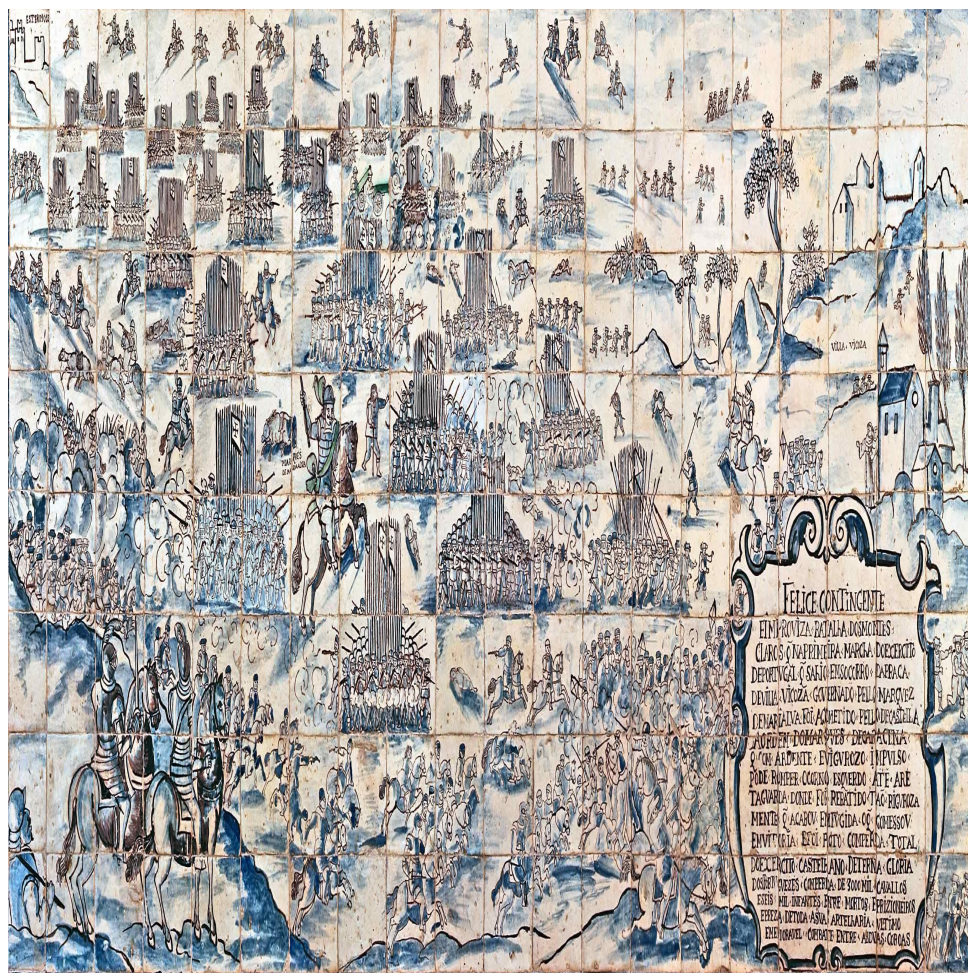 ESTREMOS
VILLA · VIÇOZA
FELICE CONTINGENTE
E IMPROVIZA · BATALHA · DOS MONTES ·
CLAROS · Q̃ NA PRIMEIRA · MARCHA · DO EXERCITO
DE PORTVGAL · Q̃ SAHIO · EM SOCORRO · DA PRACA ·
DE VILLA · VIÇOZA · GOVERNADO · PELLO MARQVEZ
DE MARIALVA · FOI · ACOMETIDO · PELLO DE CASTELLA
A ORDEN · DO MARQVES · DE CARACINA ·
Q̃ COM ARDENTE · E VIGVROZO IMPVLSO ·
PODE ROMPER · O CORNO ESQVERDO ATE · A RE
TAGVARDA · DONDE FOI REBATIDO TAO · RIGVROZA
MENTE · Q̃ ACABOV EM FVGIDA · O Q̃ COMESSOV ·
EM VITORIA · E FOI ROTO COM PERDA TOTAL
DO EXERCITO CASTELANO · DE TERNA · GLORIA
DOS PORTVGVEZES · COM PERDA · DE 3000 MIL · CAVALLOS
E SEIS · MIL · INFANTES · ENTRE · MORTOS · E PRIZIONEIROS
E PREZA · DE TODA · A SVA · ARTELHARIA · VLTIMO
E MEMORAVEL · COMBATE · ENTRE · AS DVAS · COROAS